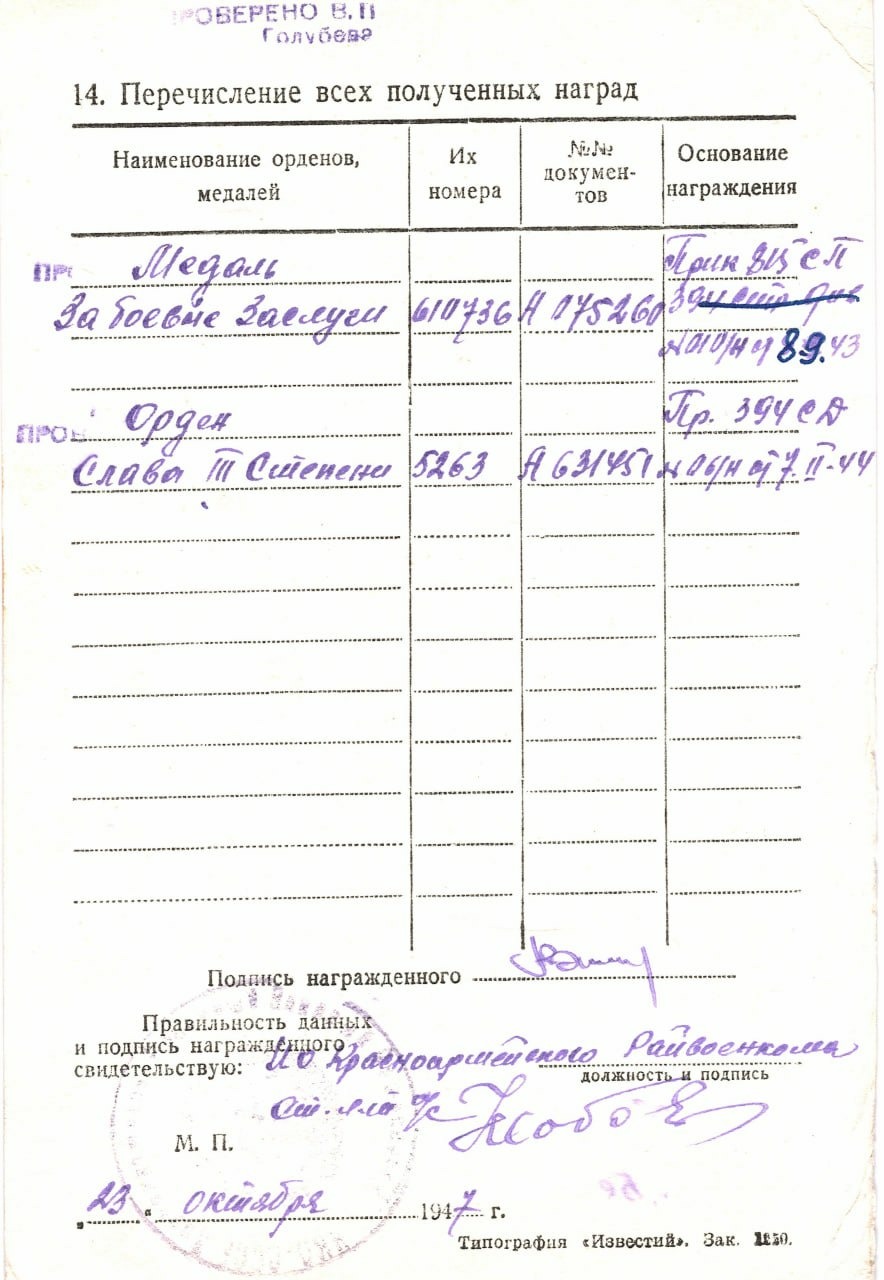 ПРОВЕРЕНО В. П
Голубева
14. Перечисление всех полученных наград
Наименование орденов, медалей
Их номера
№№ докумен-тов
Основание награждения
Медаль
Прик 815 СП
За боевые Заслуги 610736 А 075260 394
89.43
Орден
Пр. 394 СД
Слава III Степени 5263 А 631451 № 06/н от 7.II-44
Подпись награжденного
Правильность данных
и подпись награжденного
свидетельствую: ИО Красноармейского Райвоенкома
должность и подпись
М. П.
„23“ октября 1947 г.
Типография «Известий». Зак.